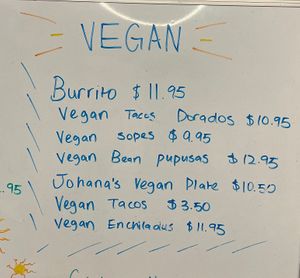 VEGAN
Burrito $11.95
Vegan Tacos Dorados $10.95
Vegan sopes $9.95
Vegan Bean pupusas $12.95
Johana's Vegan Plate $10.50
.95
Vegan Tacos $3.50
Vegan Enchiladas $11.95